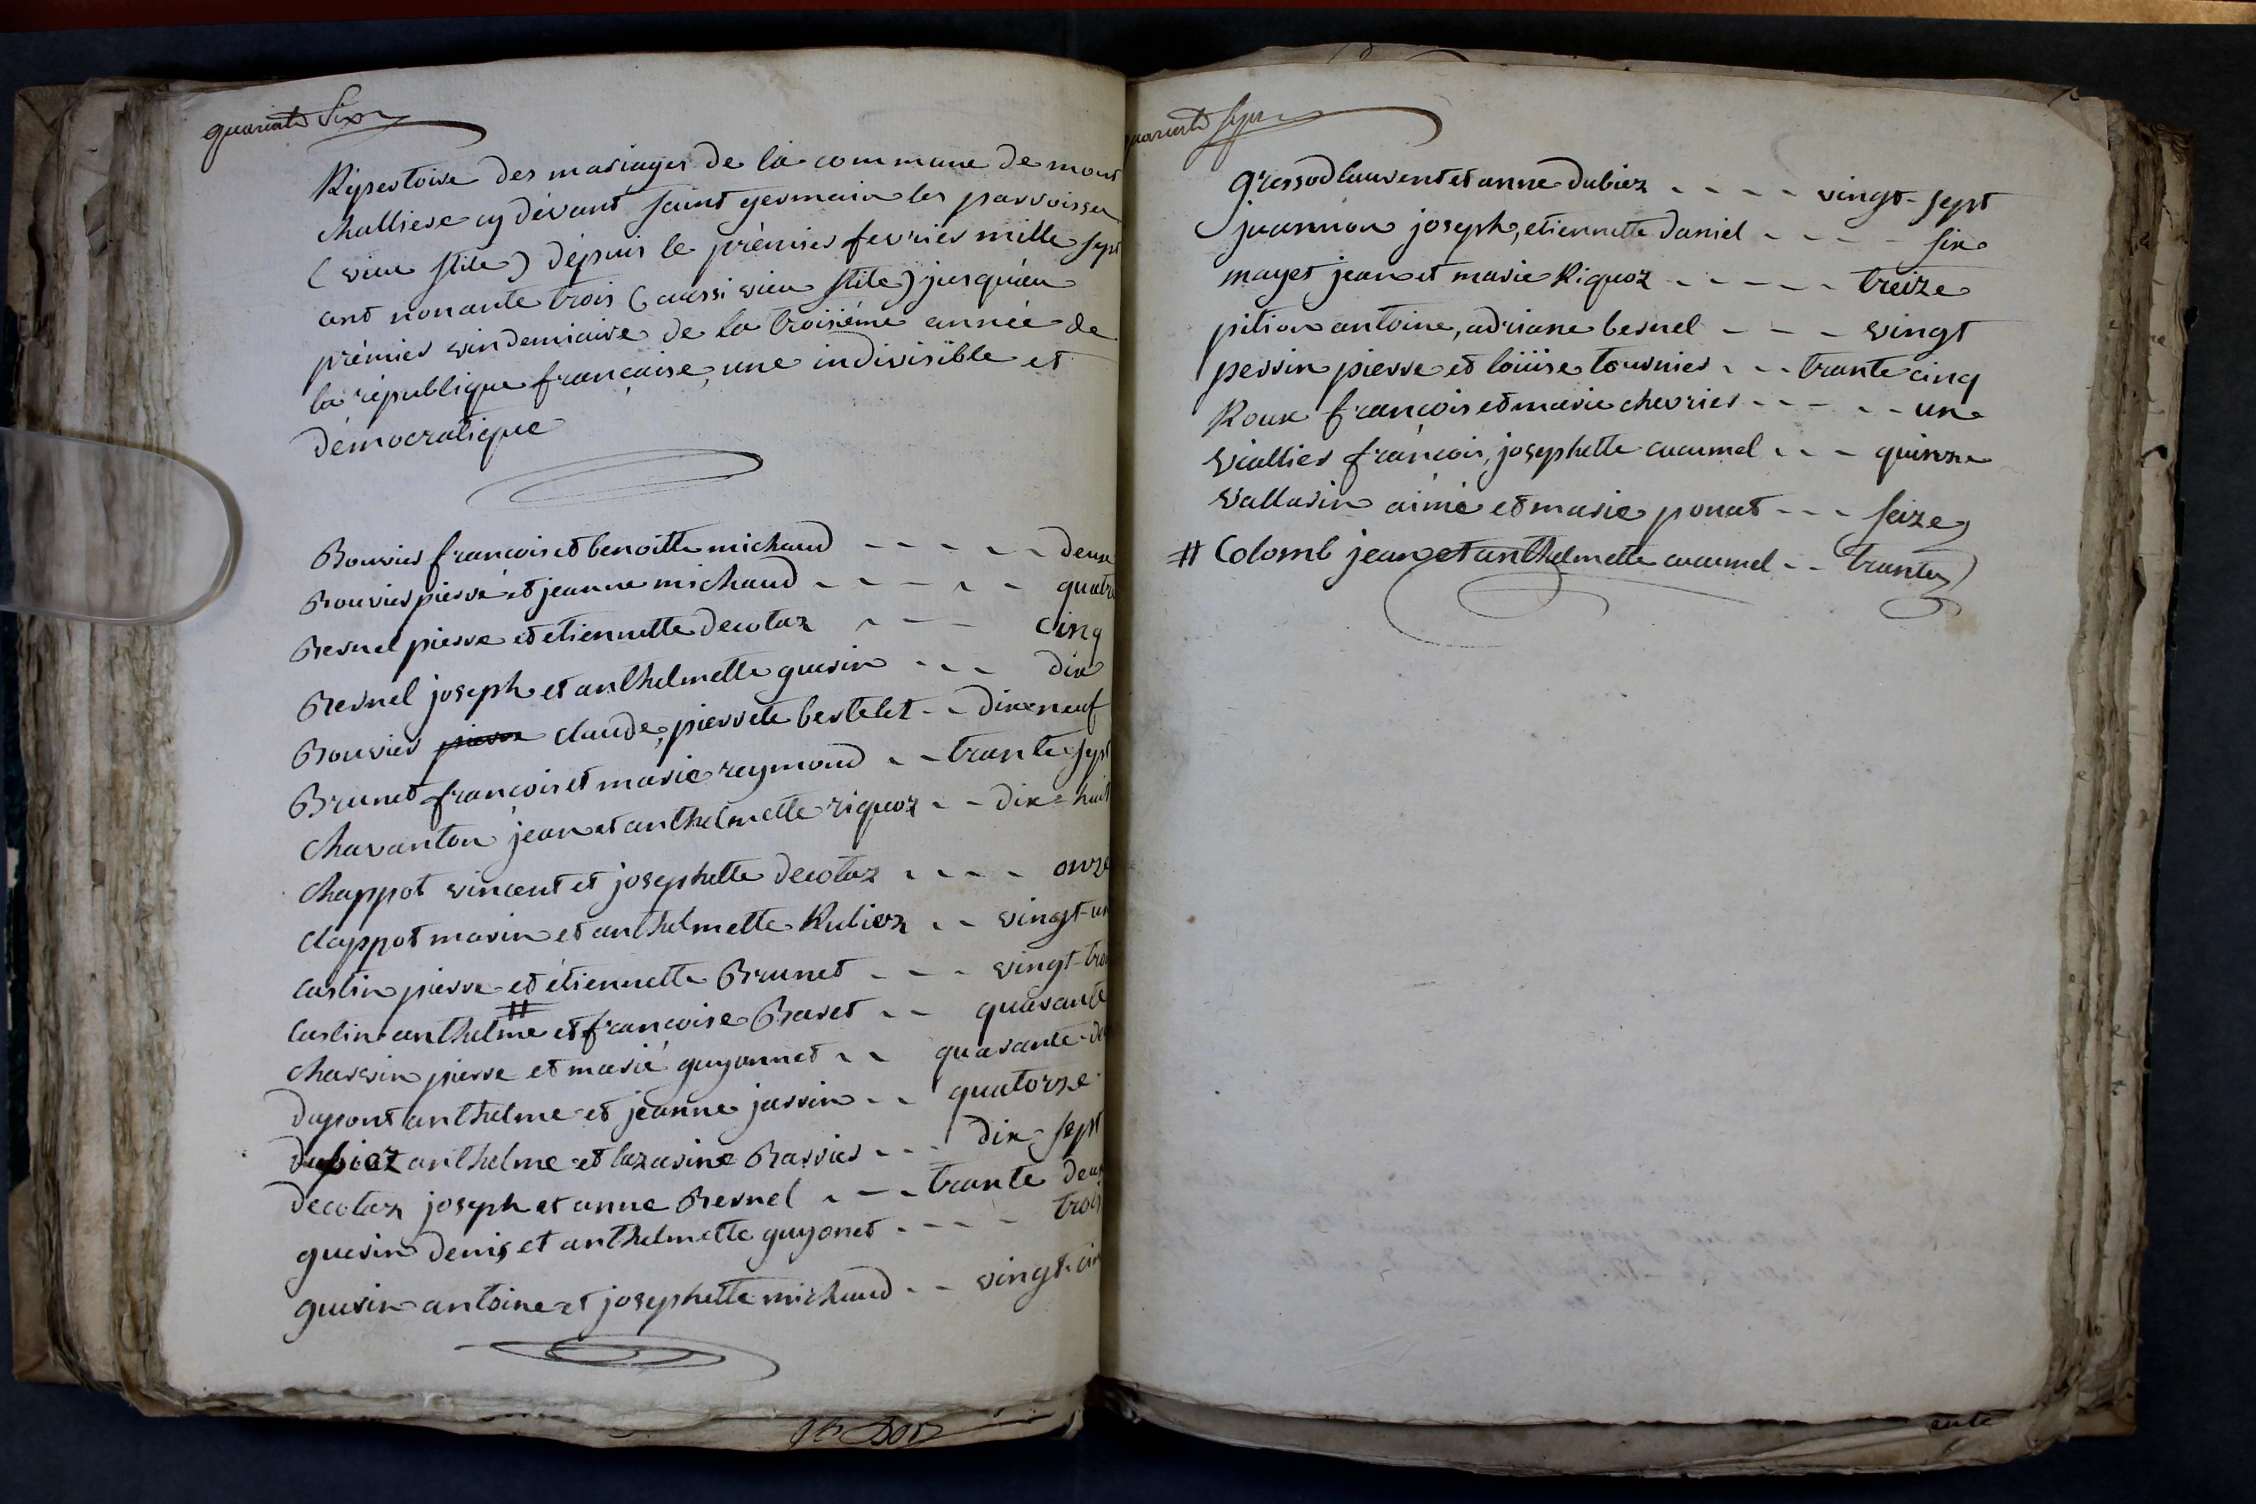 quarante Six
Répertoire des mariages de la commune de mont
challiere cy dévant saint germain les parroisses
(vieu stile) dépuis le prémier fevrier mille sept
cent nonante trois (aussi vieu stile) jusqu'au
prémier vindemiaire de la troisiéme année de
la république française, une indivisible et
démocratique
Bouvier francois et benoitte michaud - - - - - deux
Bouvier pierre et jeanne michaud - - - - - quatre
Bernel pierre et etiennette decotaz - - - cinq
Bernel joseph et anthelmette guerin - - - dix
Bouvier pierre claude, pierrete bertelet - - dix neuf
Brunet francois et marie reymond - - trante sept
Chavanton jean et anthelmette riquoz - - dix-huit
Chappot vincent et josephette decotaz - - - - onze
Chappot marin et anthelmette Rubioz - - vingt-un
Carlin pierre et étiennette Brunet - - - vingt-trois
#
Carlin anthelme et francoise Baret - - quarante
Charvin pierre et marie guyonnet - - quarante-deux
Dupont anthelme et jeanne jarrin - - quatorze
Dubiez anthelme et lazarine Barrier - - - dix-sept
Decotaz joseph et anne Bernel - - - trante deux
guerin denis et anthelmette guyonet - - - - trois
guerin antoine et josephette michaud - - vingt-cin
quarante sept
gressod laurent et anne dubiez - - - - vingt-sept
jeannion joseph, etiennette daniel - - - - six
mayet jean et marie Riquoz - - - - - treize
pition antoine, adriane bernel - - - vingt
perrin pierre et loüise tournier - - - trante cinq
Roux françois et marie chevrier - - - - - un
viallier françois, josephette cucumel - - - quinze
vallarin aimé et marie ponat - - - seize
# Colomb jean et anthelmette cucumel - - trante